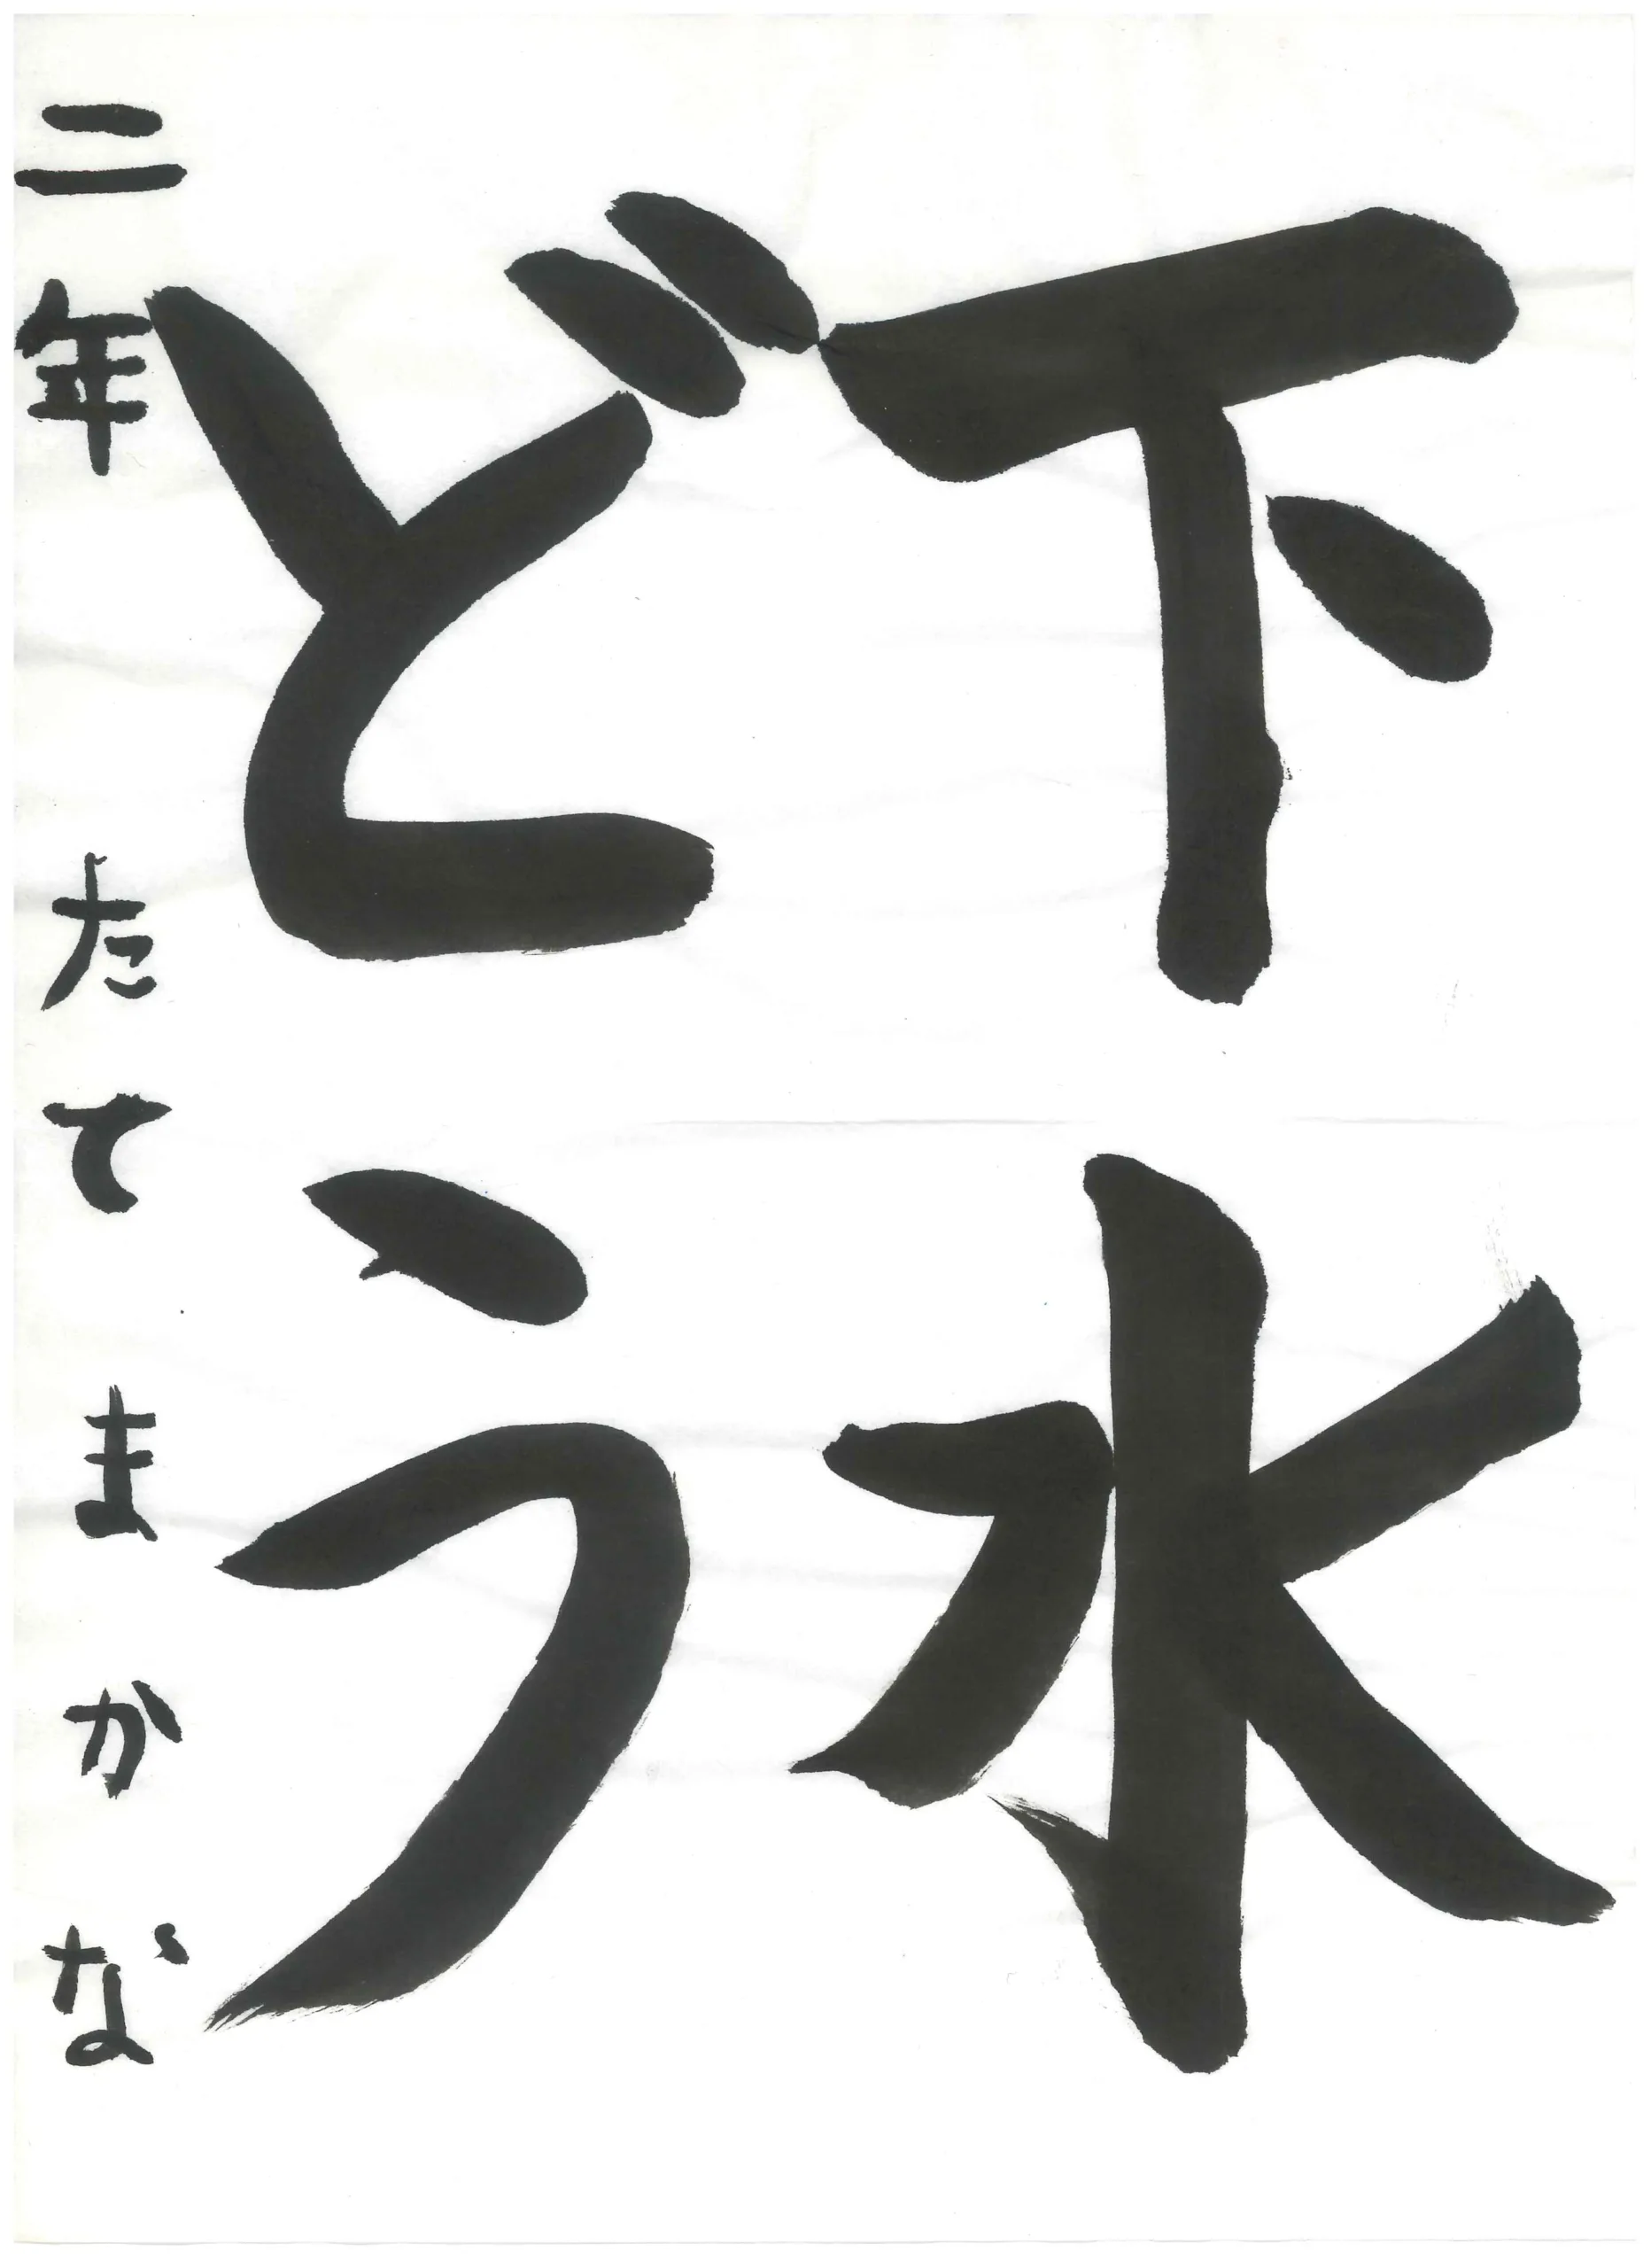 下水
どう
二年 たてまかな